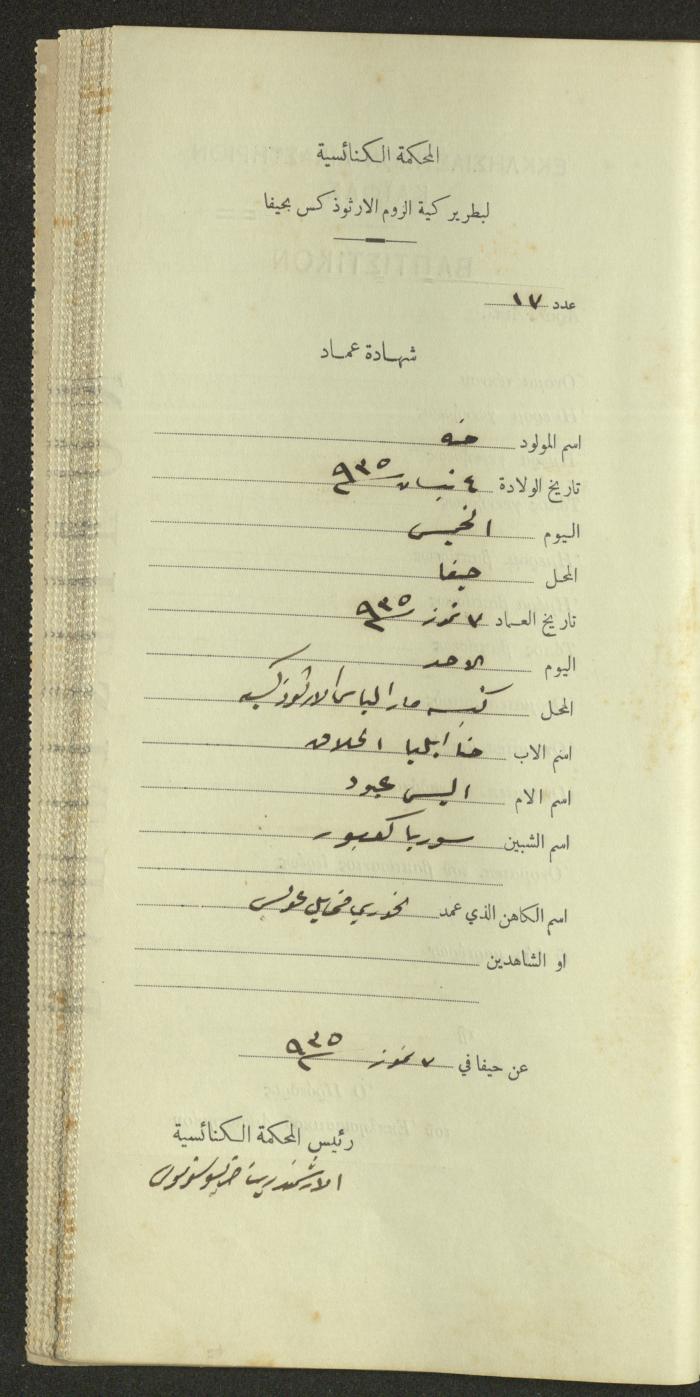 المحكمة الكنائسية
لبطريركية الروم الارثوذكس بحيفا
عدد ١٧
شهادة عماد
اسم المولود حنه
تاريخ الولادة ٤ نيسان ٩٣٥
اليوم الخميس
المحل حيفا
تاريخ العماد ٧ تموز ٩٣٥
اليوم الاحد
المحل كنيسه مار الياس الارثوذكسيه
اسم الاب حنا ايليا الحلاق
اسم الام اليس عبود
اسم الشبين سوريا كعبور
اسم الكاهن الذي عمد الخوري
او الشاهدين
عن حيفا في ٧ تموز ٩٣٥
رئيس المحكمة الكنائسية
الارشمندريت